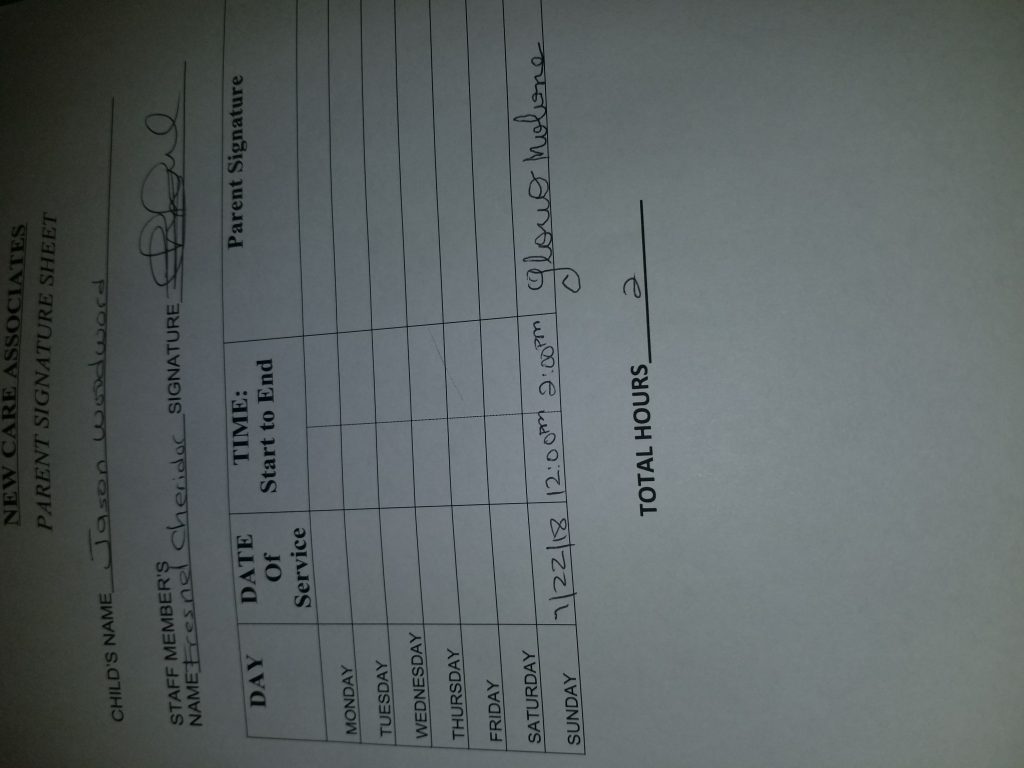 NEW CARE ASSOCIATES
PARENT SIGNATURE SHEET
CHILD'S NAME Jason woodward
STAFF MEMBER'S
NAME Fresnel cheridor SIGNATURE
DAY DATE Of Service TIME: Start to End Parent Signature
MONDAY
TUESDAY
WEDNESDAY
THURSDAY
FRIDAY
SATURDAY
SUNDAY 7/22/18 12:00m 2:00m
TOTAL HOURS 2